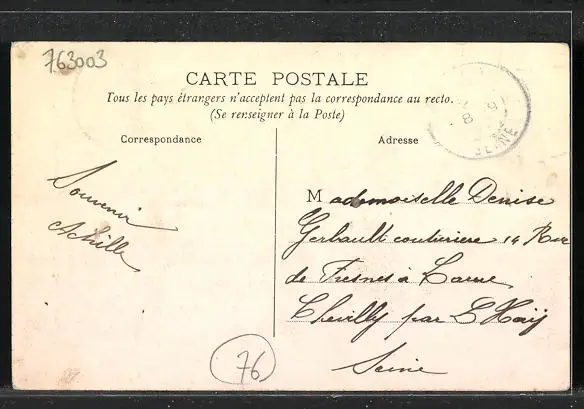 763003
CARTE POSTALE
Tous les pays étrangers n'acceptent pas la correspondance au recto.
(Se renseigner à la Poste)
Correspondance
Adresse
SEINE
Souvenir
Achille
Mademoiselle Denise
Gerbault couturiere 14 Rue
de Fresnes à Larue
Chevilly par L'Haÿ
Seine
76